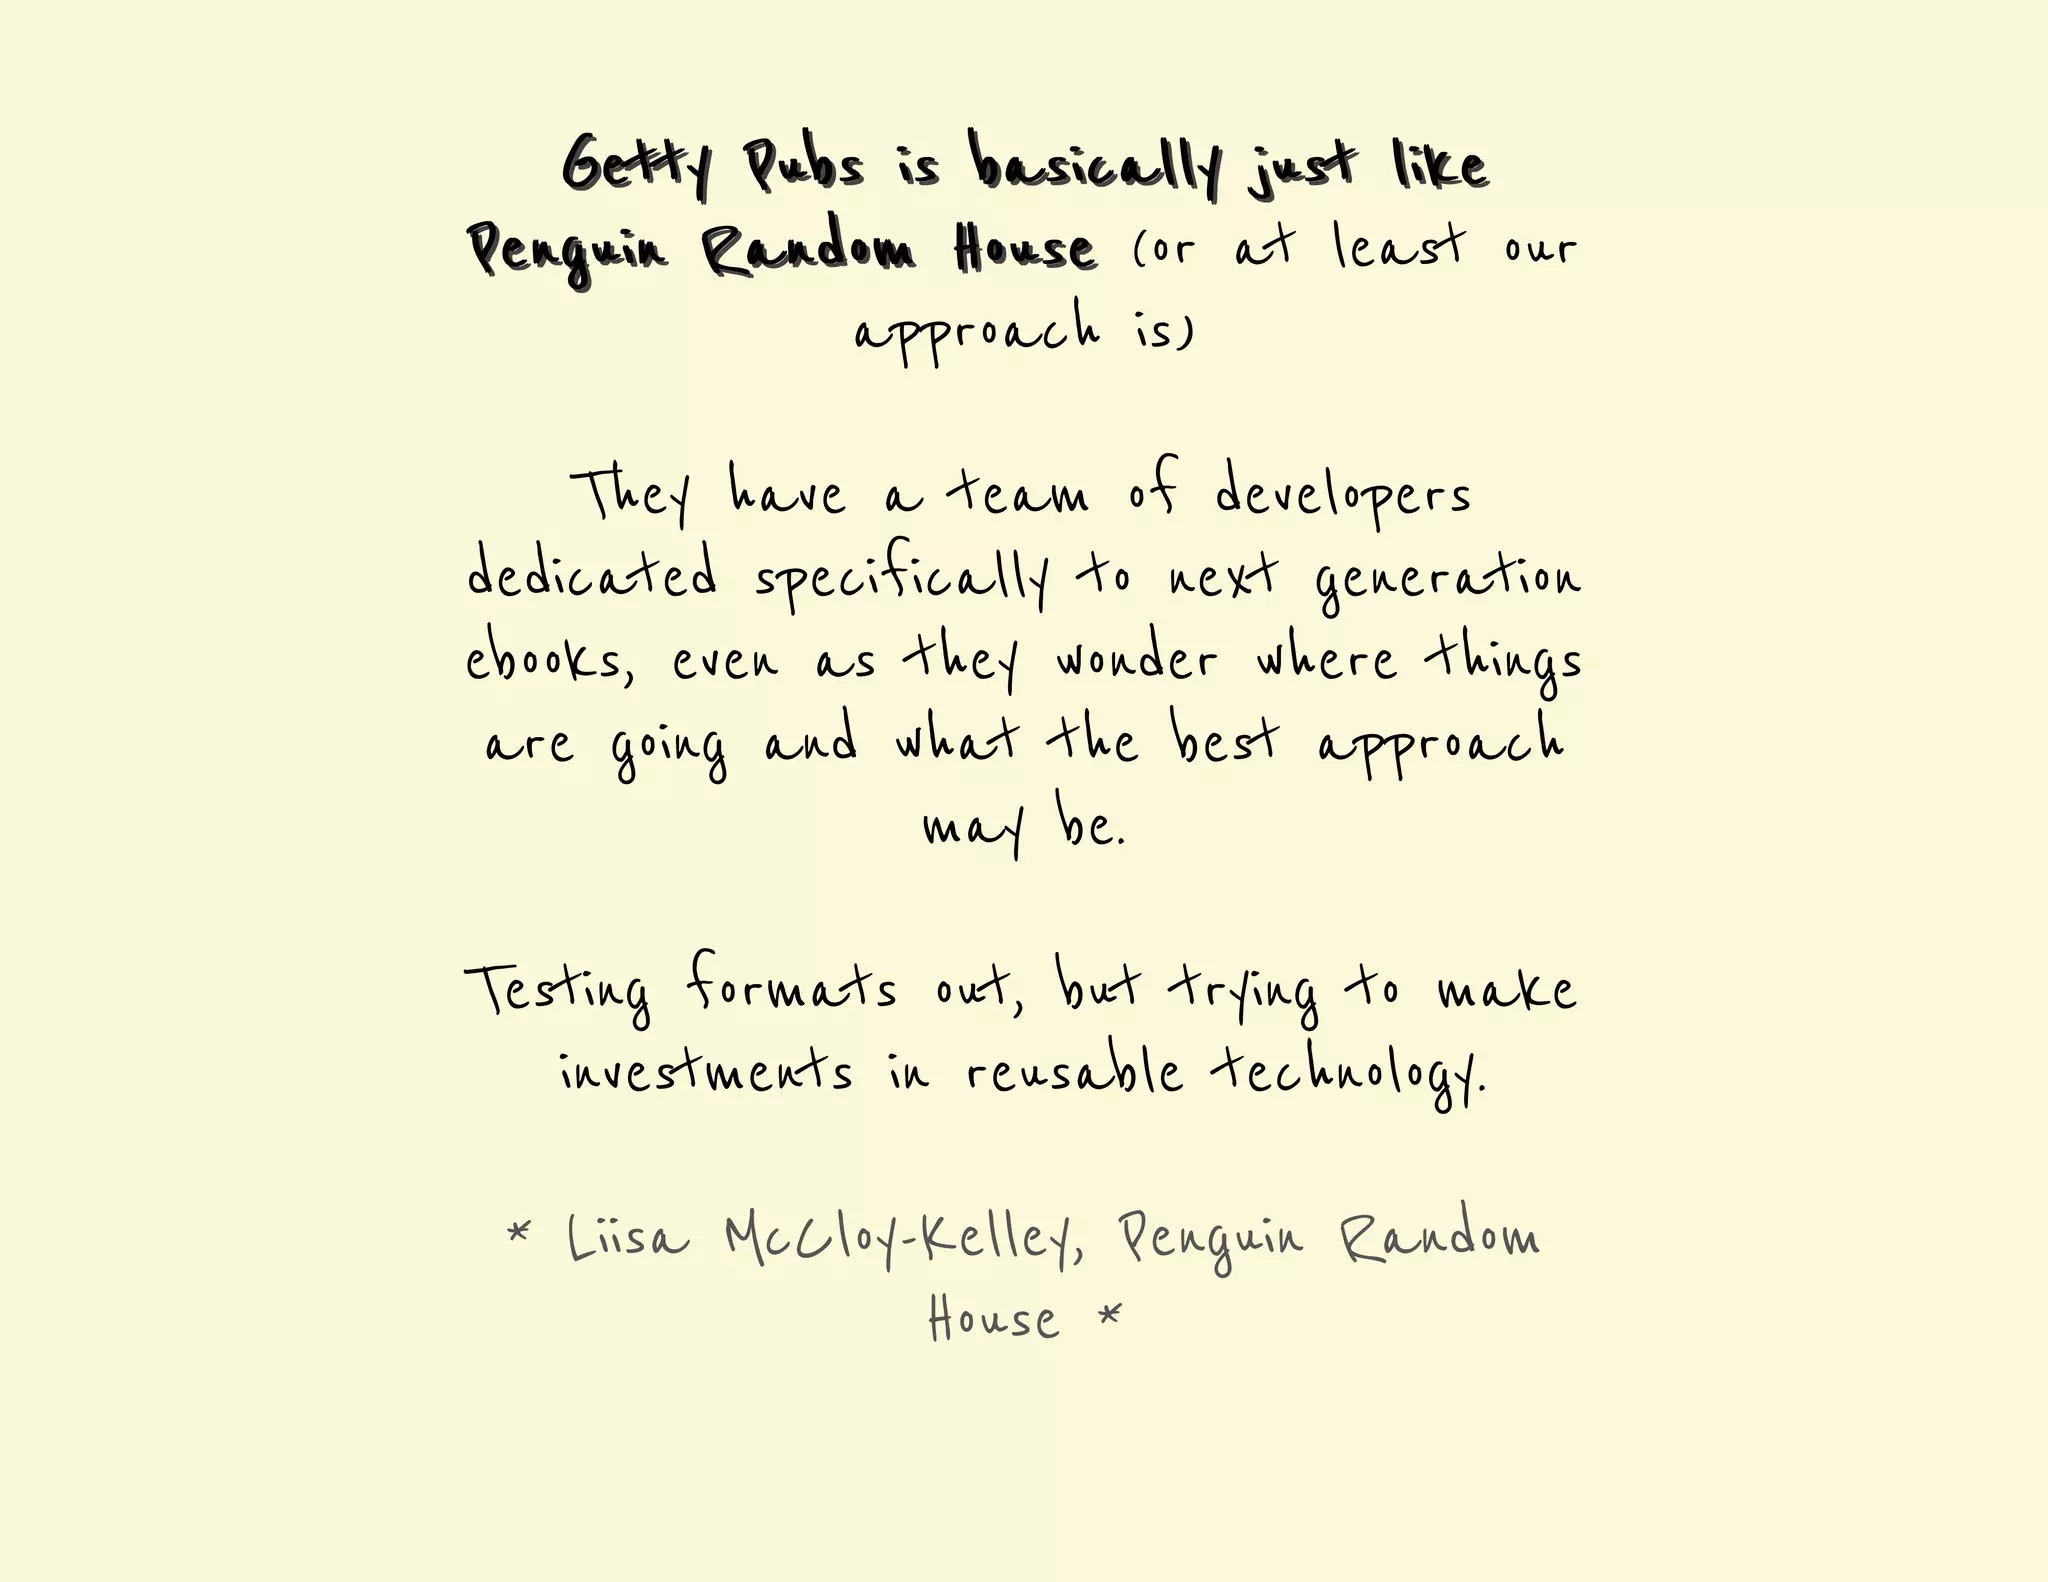 Getty Pubs is basically just like
Penguin Random House (or at least our
approach is)
They have a team of developers
dedicated specifically to next generation
ebooks, even as they wonder where things
are going and what the best approach
may be.
Testing formats out, but trying to make
investments in reusable technology.
* Liisa McCloy-Kelley, Penguin Random
House *